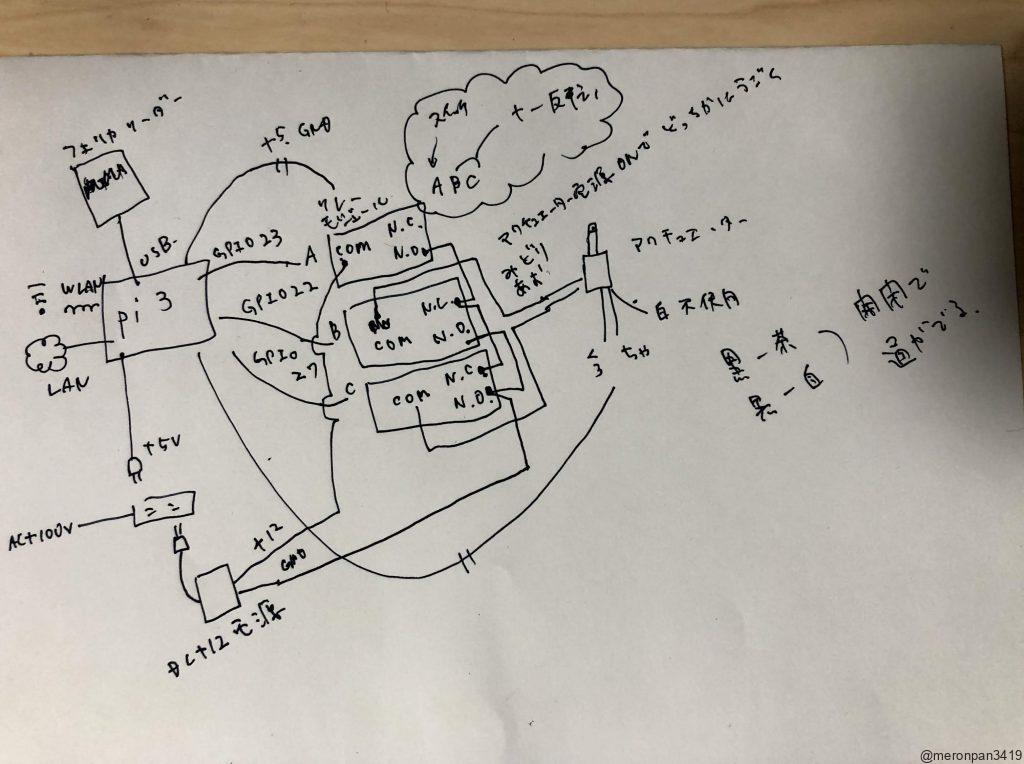 フェリカリーダー
USB
WLAN
pi 3
LAN
GPIO 23
GPIO 22
GPIO
27
+5. GND
A
B
C
リレー
モジュール
com
N.C.
N.O.
com
N.C.
N.O.
com
N.C.
N.O.
A BC
+ー反転
アクチュエーター電源 ONで どっちかにうごく
みどり
あお
アクチュエーター
白 不使用
くろ
ちゃ
黒ー茶
黒ー白
開閉で
逆がでる.
+5V
AC+100V
+12
GND
DC+12電源
@meronpan3419